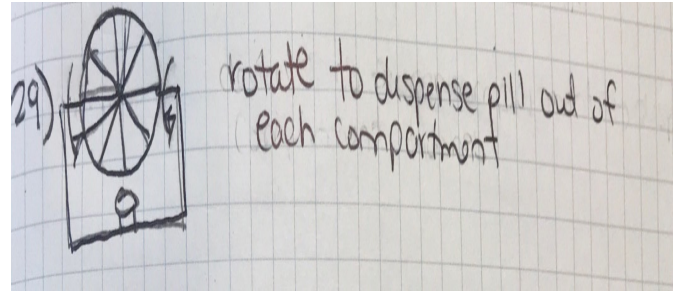 29)
rotate to dispense pill out of
each compartment